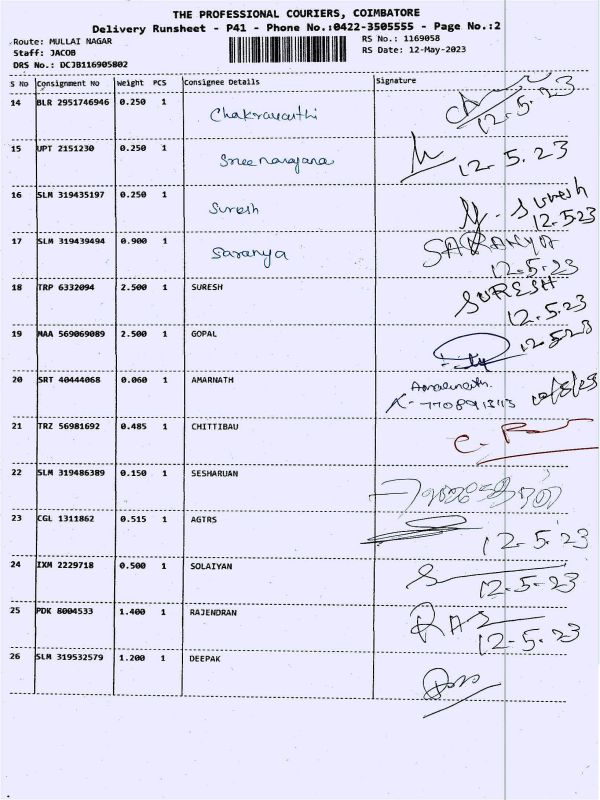 THE PROFESSIONAL COURIERS, COIMBATORE
Delivery Runsheet - P41 - Phone No.:0422-3505555 - Page No.:2
Route: MULLAI NAGAR RS No.: 1169058
Staff: JACOB RS Date: 12-May-2023
DRS No.: DCJB116905802
S No Consignment No Weight PCS Consignee Details Signature
14 BLR 2951746946 0.250 1 Chakravarthi 12.5.23
15 UPT 2151230 0.250 1 Sree narayana 12.5.23
16 SLM 319435197 0.250 1 Suresh Suresh
12.5.23
17 SLM 319439494 0.900 1 Saranya SARANYA
12.5.23
18 TRP 6332094 2.500 1 SURESH SURESH
12.5.23
19 MAA 569069089 2.500 1 GOPAL 12.5.23
20 SRT 40444068 0.060 1 AMARNATH Amarnath
21 TRZ 56981692 0.485 1 CHITTIBAU
22 SLM 319486389 0.150 1 SESHARUAN
23 CGL 1311862 0.515 1 AGTRS 12.5.23
24 IXM 2229718 0.500 1 SOLAIYAN 12.5.23
25 PDK 8004533 1.400 1 RAJENDRAN 12.5.23
26 SLM 319532579 1.200 1 DEEPAK